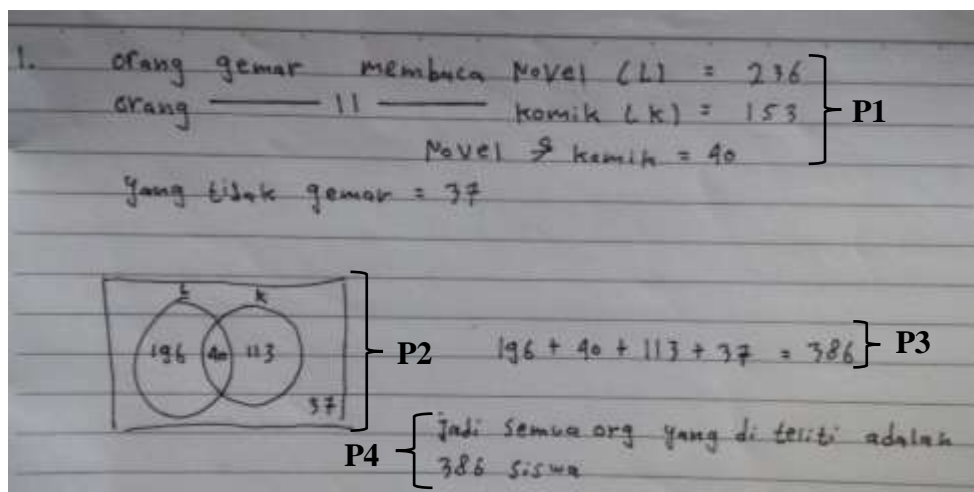 1. orang gemar membaca Novel (L) = 236
orang —— 11 —— komik (k) = 153
P1
Novel & komik = 40
yang tidak gemar = 37
L k
196 40 113
37
P2
196 + 40 + 113 + 37 = 386
P3
P4
jadi semua org yang di teliti adalah
386 siswa